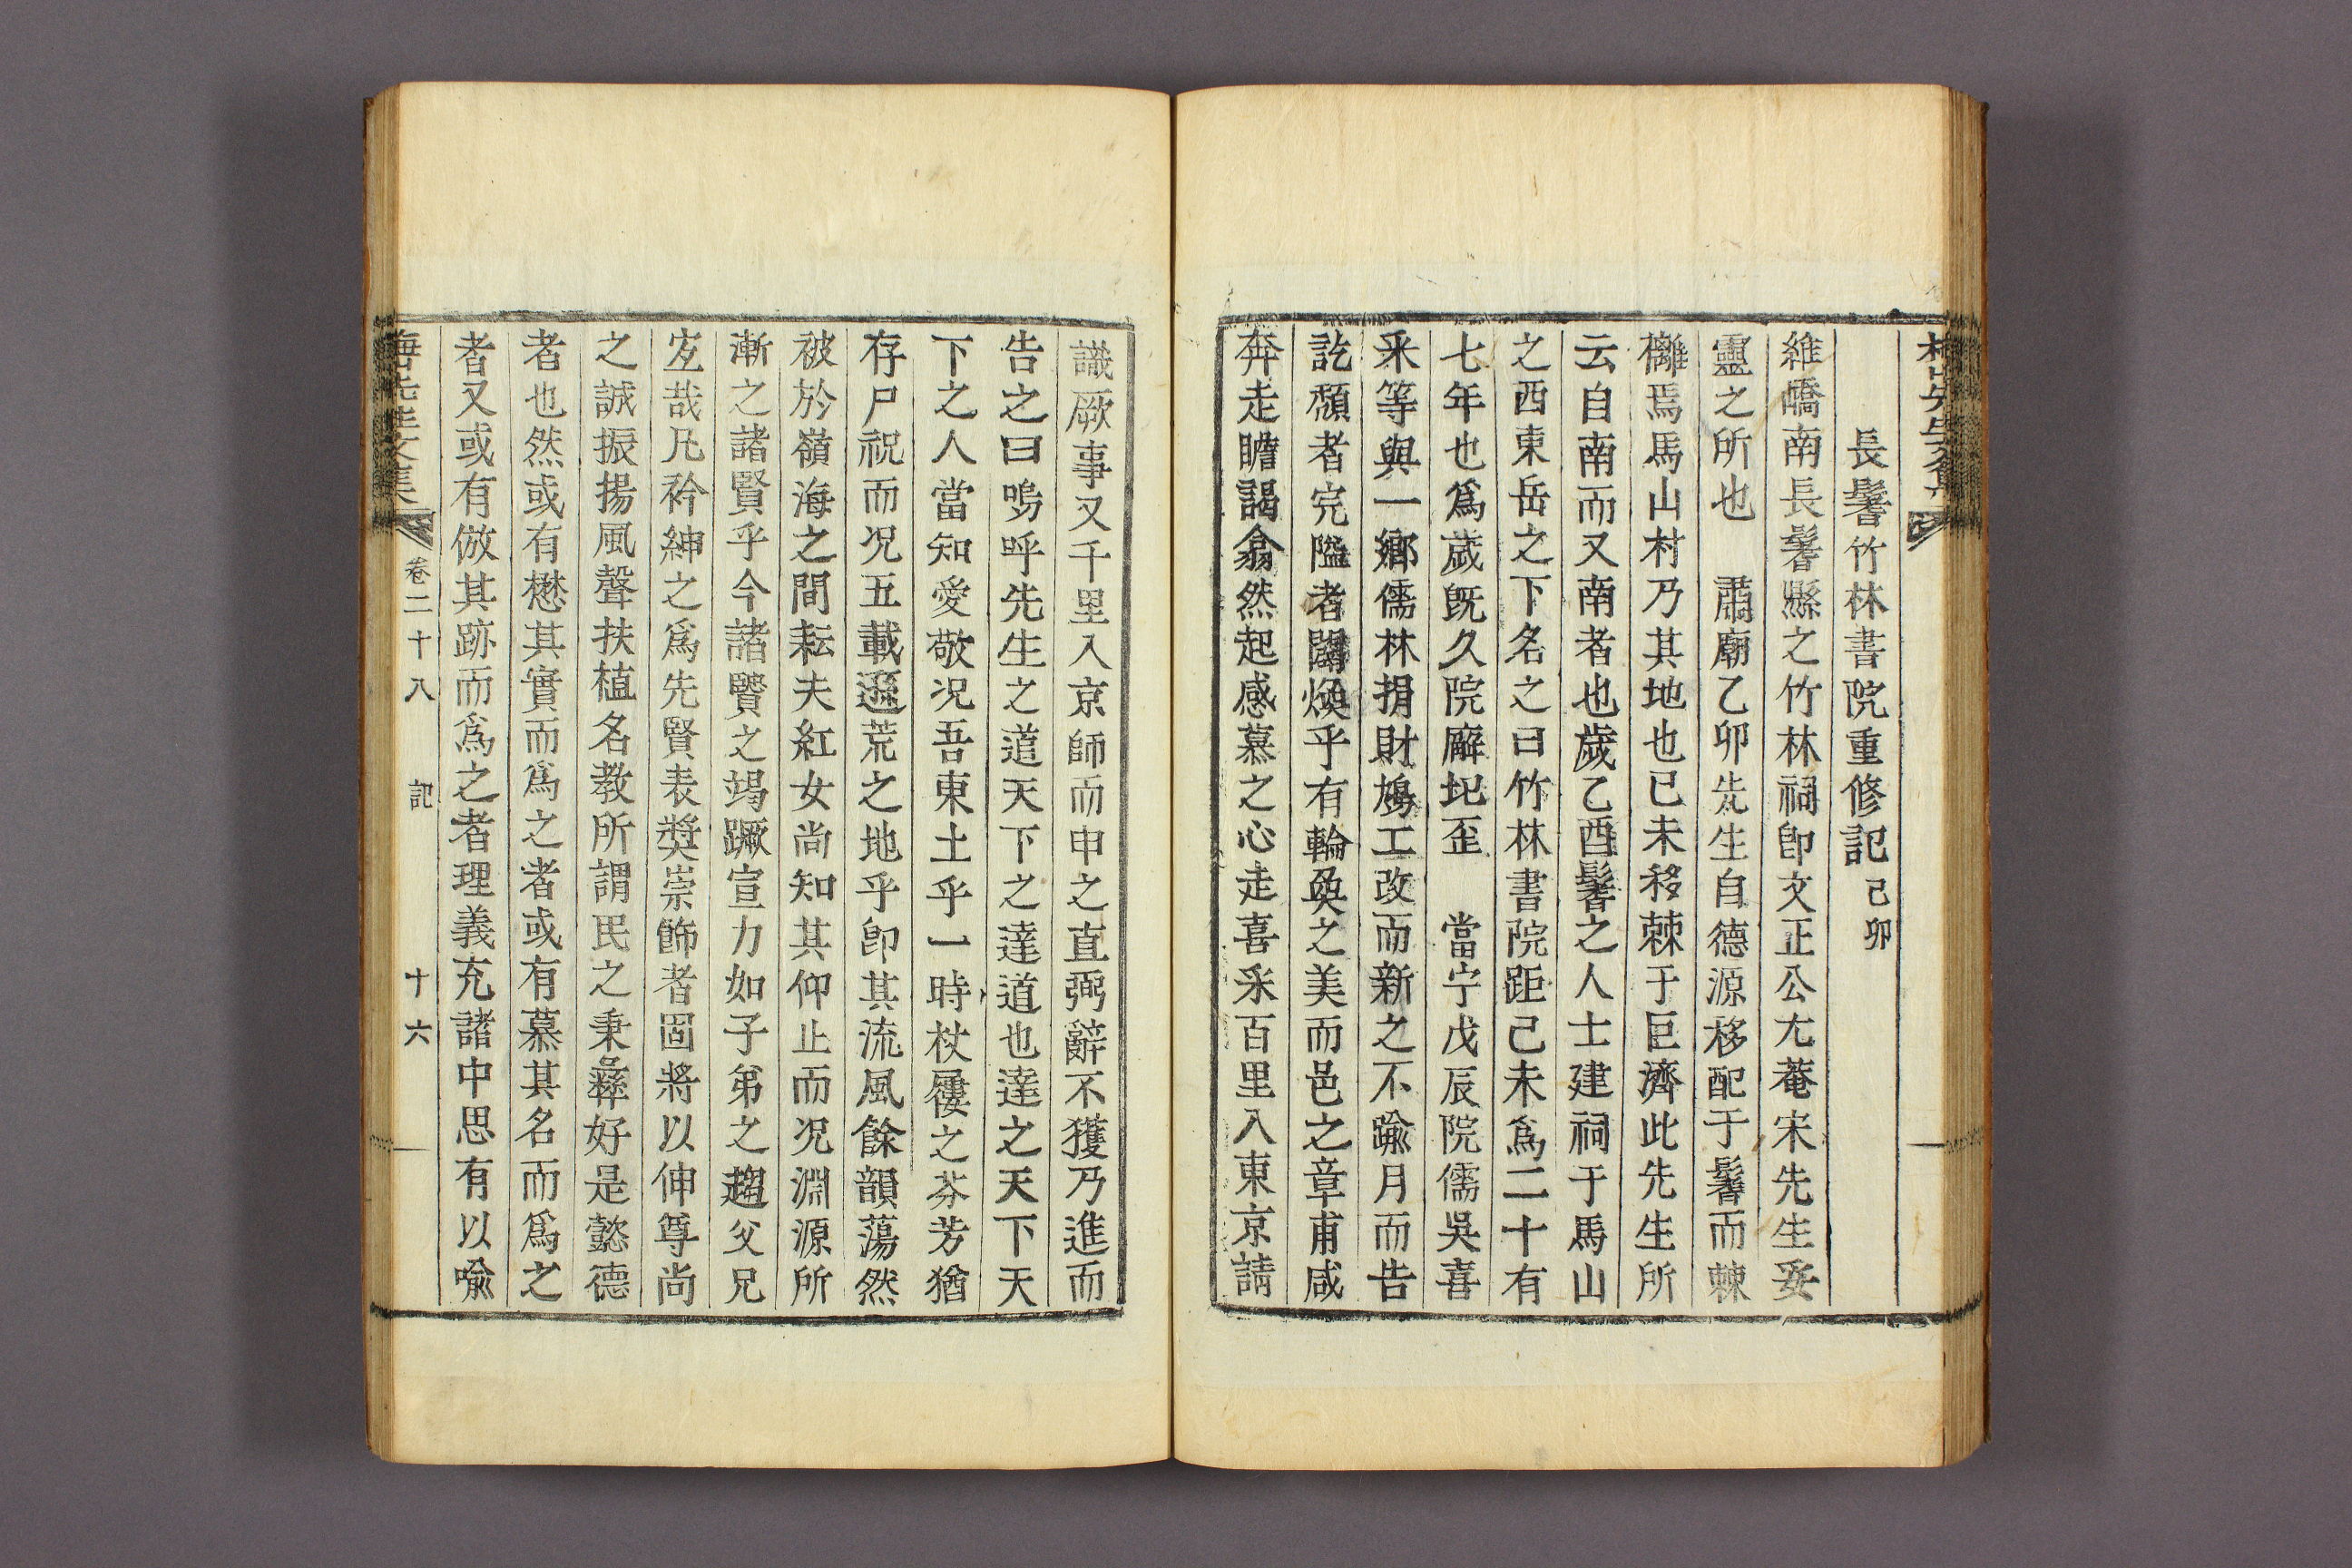 長鬐竹林書院重修記 己卯
維嶠南長鬐縣之竹林祠卽文正公尢菴宋先生妥
靈之所也 肅廟乙卯先生自德源移配于鬐而棘
籬焉馬山村乃其地也已未移棘于巨濟此先生所
云自南而又南者也歲乙酉鬐之人士建祠于馬山
之西東岳之下名之曰竹林書院距己未爲二十有
七年也爲歲旣久院廨圯歪 當宁戊辰院儒吳喜
采等與一鄕儒林捐財鳩工改而新之不踰月而告
訖頹者完隘者闢煥乎有輪奐之美而邑之章甫咸
奔走瞻謁翕然起感慕之心走喜采百里入東京請
議厥事又千里入京師而申之直弼辭不獲乃進而
告之曰嗚呼先生之道天下之達道也達之天下天
下之人當知愛敬况吾東土乎一時杖屨之芬芳猶
存尸祝而况五載遜荒之地乎卽其流風餘韻蕩然
被於嶺海之間耘夫紅女尚知其仰止而况淵源所
漸之諸賢乎今諸賢之竭蹶宣力如子弟之趨父兄
宐哉凡衿紳之爲先賢表奬崇飾者固將以伸尊尚
之誠振揚風聲扶植名教所謂民之秉彝好是懿德
者也然或有懋其實而爲之者或有慕其名而爲之
者又或有倣其跡而爲之者理義充諸中思有以喩
梅山先生文集 卷二十八 記 十六